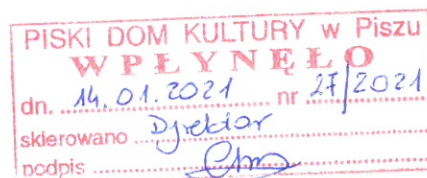 PISKI DOM KULTURY w Piszu
WPŁYNĘŁO
dn. 14.01.2021 nr 27/2021
skierowano Dyrektor
podpis